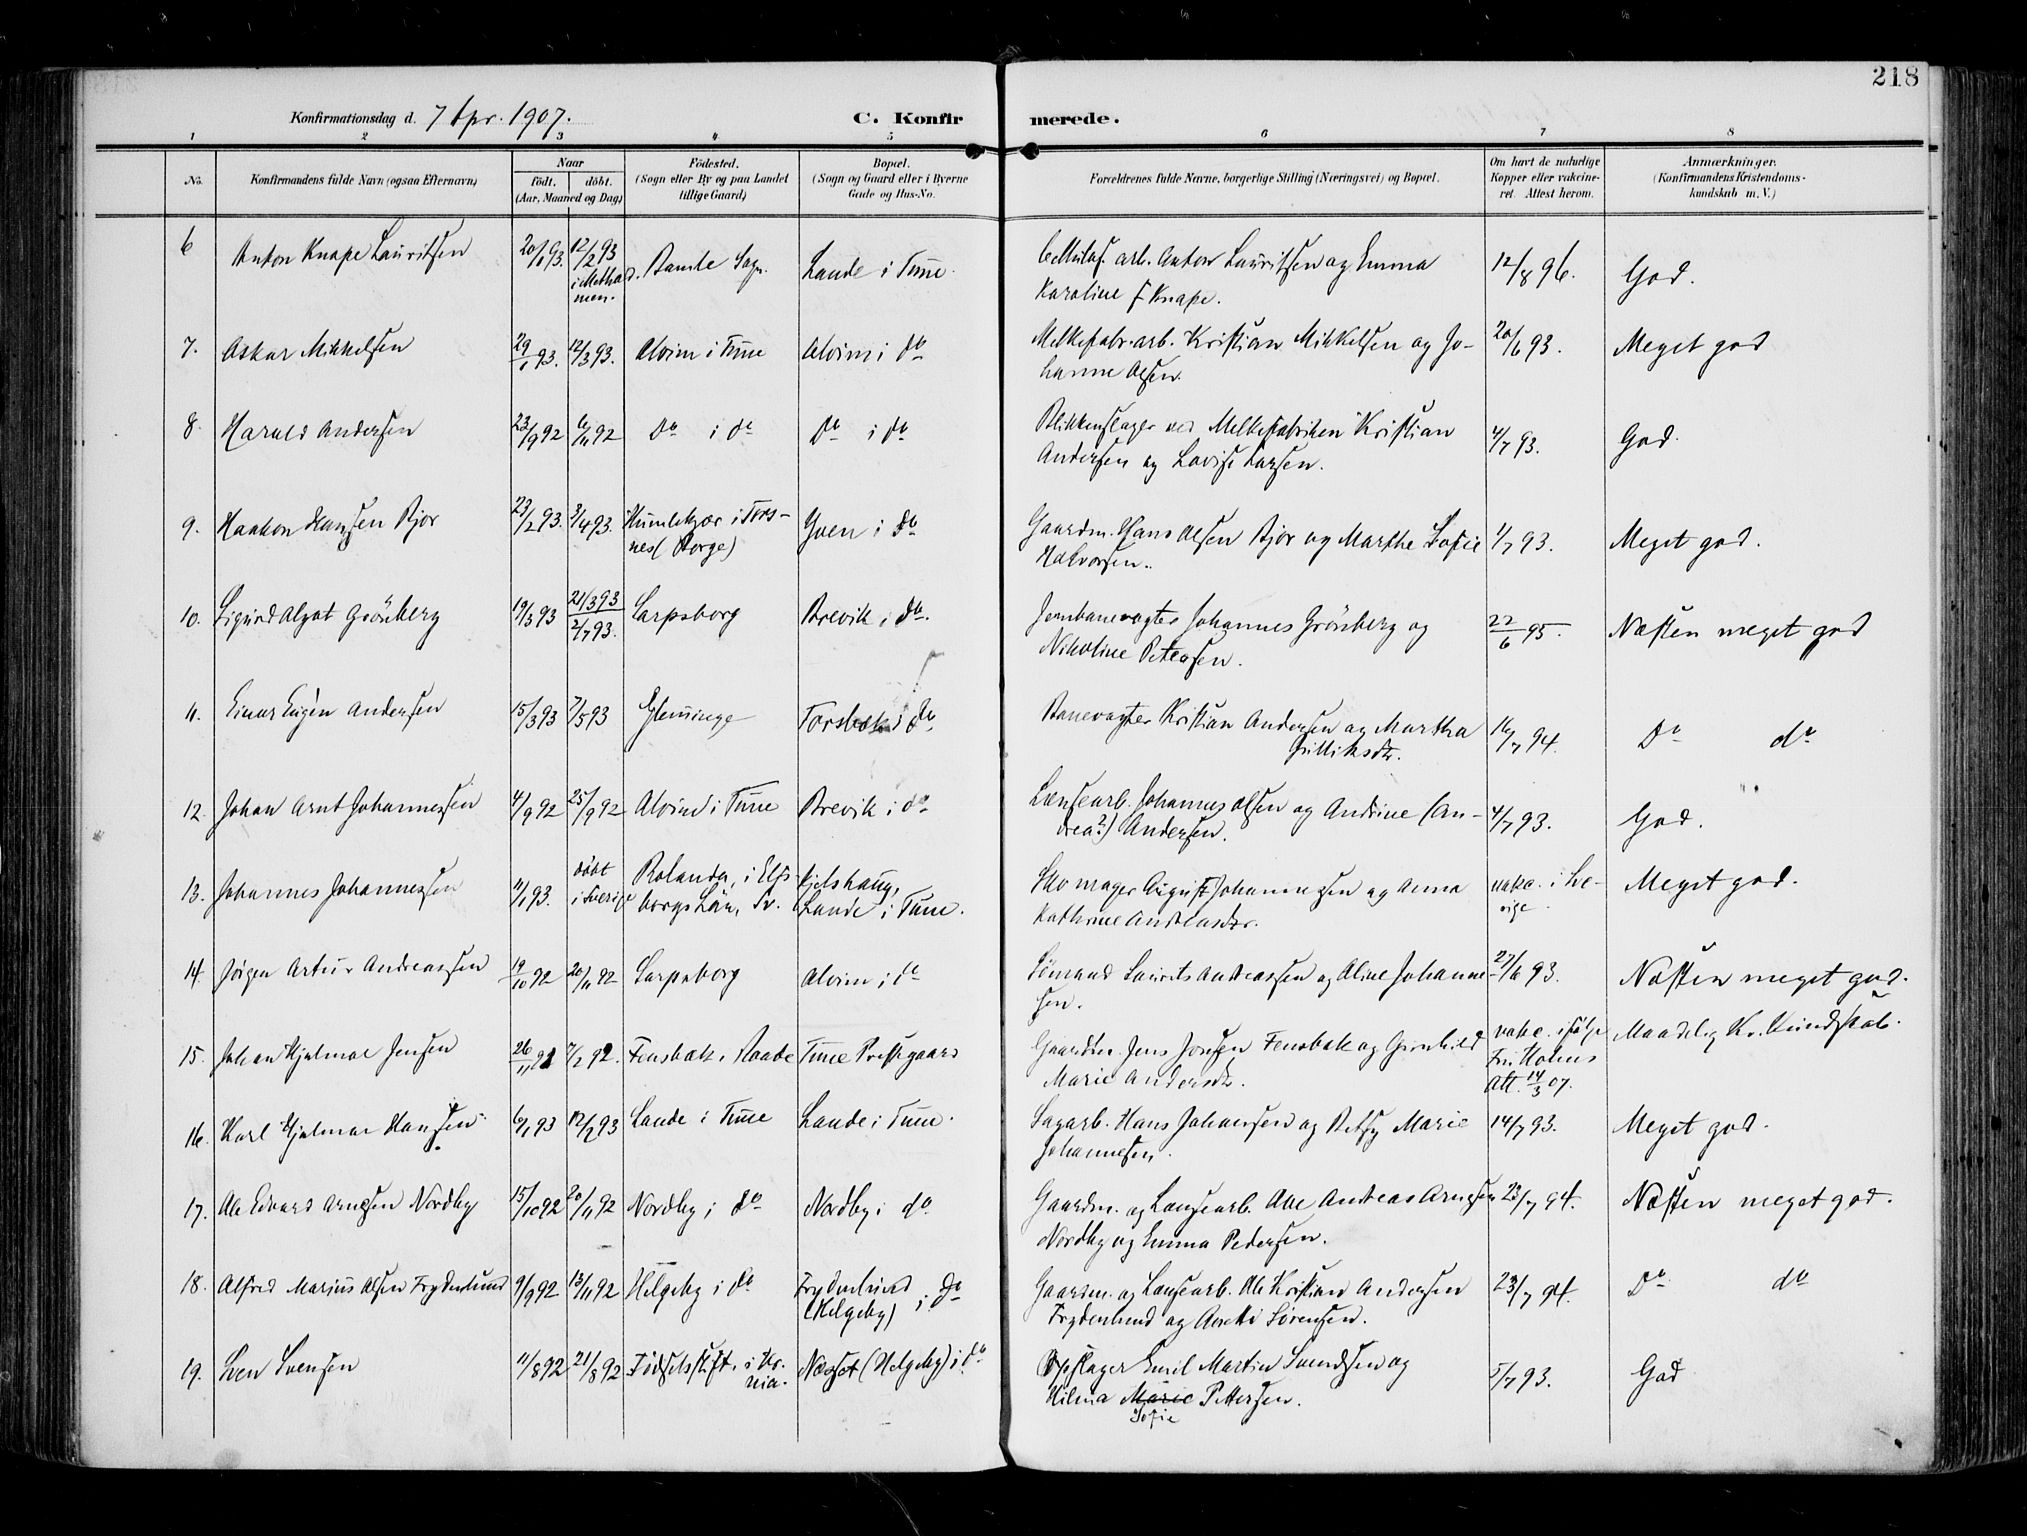 218
Konfirmationsdag d. 7 Apr. 1907.
C. Konfirmerede.
1 2 3 4 5 6 7 8
No.
Konfirmandens fulde Navn (ogsaa Efternavn)
Naar
født. døbt.
(Aar, Maaned og Dag)
Fødested.
(Sogn eller By og paa Landet
tillige Gaard)
Bopæl.
(Sogn og Gaard eller i Byerne
Gade og Hus-No.
Forældrenes fulde Navne, borgerlige Stilling (Næringsvei) og Bopæl.
Om havt de naturlige
Kopper eller vakcine-
ret. Attest herom.
Anmærkninger.
(Konfirmandens Kristendoms-
kundskab m. V.)
6 Anton Knape Lauritsen 20/1 93. 12/2 93 Bamle Sogn. Lande i Tune. arb. Anton Lauritsen og Emma 12/8 96. God.
i Metho
men.
Karoline f Knape.
7. Oskar Mikkelsen 29/1 93. 12/3 93. Alvim i Tune Alvim i do Melkefabr. arb. Kristian Mikkelsen og Jo- 20/6 93. Meget god
hanne Olsen.
8. Harald Andersen 23/9 92 6/11 92 Do i do Do i do Blikkenslager ved Melkefabriken Kristian 4/7 93. God.
Andersen og Lovise Larsen.
9. Haakon Hansen Bjor 23/2 93. 3/4 93. Humlekjær i Tors- Yven i do Gaardm. Hans Olsen Bjor og Marthe Sofie 1/7 93. Meget god.
nes (Borge)
Halvorsen.
10. Sigurd Algot Grönberg 19/3 93 21/3 93 2/7 93. Sarpsborg Brevik i do. Jernbanevagter Johannes Grönberg og 22/6 95. Næsten meget god
Nikoline Petersen.
11. Einar Eugén Andersen 15/3 93 7/5 93 Glemminge Torsbæk i do Banevagter Kristian Andersen og Martha 16/7 94. Do do
Gulliksdr.
12. Johan Arnt Johannessen 4/9 92 25/9 92 Alvim i Tune Brevik i do Lænsearb. Johannes Olsen og Andrine (An- 4/7 93. God.
drea?) Andersen.
13. Johannes Johannessen 11/1 93. døbt Rolanda, i Elfs- Fjelshaug, Skomager August Johannessen og Anna vakc. i Sve- Meget god.
i Sverige borgs Län, Sv. Lande i Tune. Kathrine Andreasdr. rige
14. Jørgen Artur Andreassen 19/10 92 20/11 92 Sarpsborg Alvim i do Sömand Laurits Andreassen og Aline Johanne 27/6 93. Næsten meget god.
sen.
15. Johan Hjalmar Jensen 26/11 91 7/2 92. Fensbæk i Raade Tune Prestegaard Gaardbr. Jens Jonsen Fensbæk og Gunhild vakc. ifølge Maadelig Kr. Kundskab.
Marie Andersdr. Holms
Att. 14/3 07.
16. Karl Hjalmar Hansen 6/1 93 12/2 93 Lande i Tune Lande i Tune. Sagarb. Hans Johansen og Betsy Marie 14/7 93. Meget god.
Johannesen.
17. Ole Edvard Arnesen Nordby 15/10 92 20/11 92 Nordby i do Nordby i do Gaardm. og Lænsearb. Ole Andreas Arnesen 23/7 94. Næsten meget god.
Nordby og Emma Pedersen.
18. Alfred Marius Olsen Frydenlund 9/9 92 13/11 92 Helgeby i do Frydenlund Gaardm. og Lænsearb. Ole Kristian Andersen 23/7 94. Do do
(Helgeby) i do
Frydenlund og Anette Sørensen.
19. Sven Svensen 11/8 92 21/8 92 Fødselsstift. i Kr. Næsset (Helgeby) i do Opslager Emil Martin Svendsen og 5/7 93. God
nia.
Hilma Marie Pettersen.
Sofie